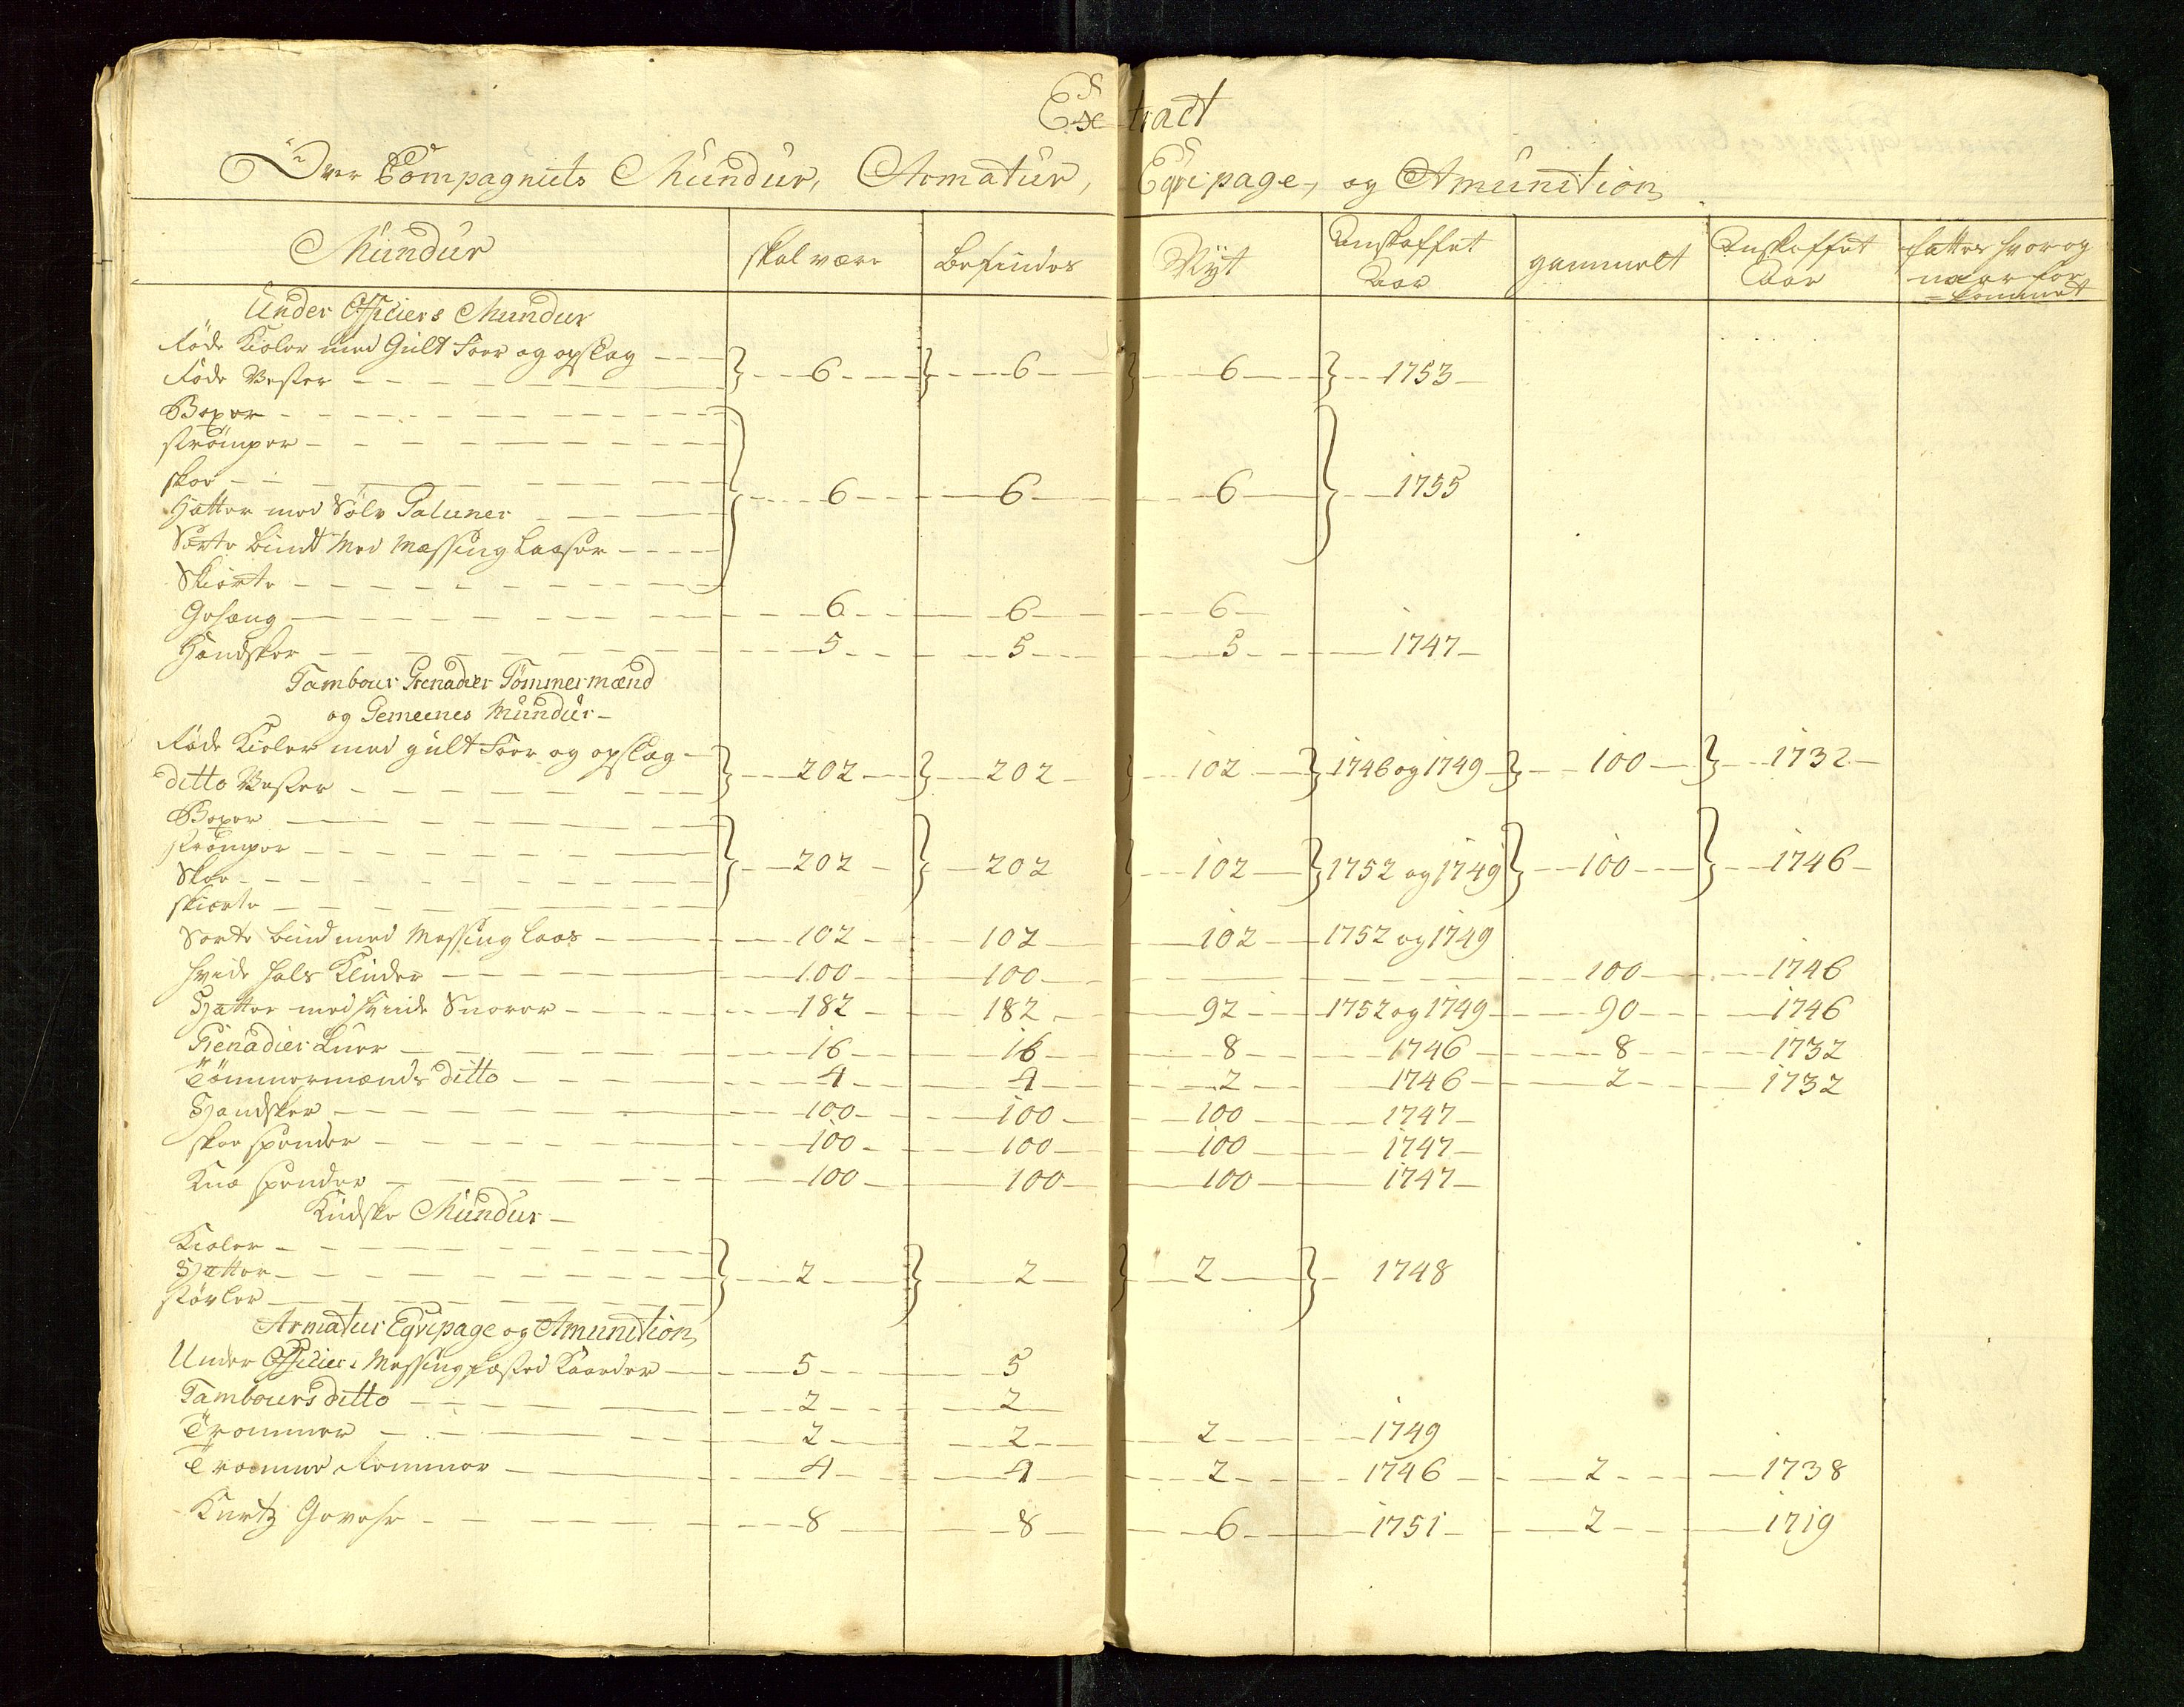 Extract
Over Compagniets Mundur, Armatur, Equipage, og Amunition
Mundur skal være Befindes Nÿt Anskaffet Aar gammelt Anskaffet Aar fattes hvor og naar forkommet
Under Officiers Mundur
Røde Kioler med Gult Foer og opslag
Røde Vester } 6 } 6 } 6 } 1753
Boxer
strömper
skoe
Hatter med Sølv Galuner } 6 6 6 } 1755
Sorte bind Med Messing Laaser
Skiorte
Gehæng 6 6 6
Handsker 5 5 5 1747
Tambour Grenadier Tömmermænd
og Gemeenes Mundur
Røde Kioler med gult Foer og opslag
ditto Vester } 202 } 202 } 102 } 1746 og 1749 } 100 } 1732
Boxer
strömper
Skoe } 202 } 202 } 102 } 1752 og 1749 } 100 } 1746
skiorte
Sorte bind med Messing Laas 102 102 102 1752 og 1749
hvide hals Kluder 100 100 100 1746
Hatter med hvide Snorer 182 182 92 1752 og 1749 90 1746
Grenadier Luer 16 16 8 1746 8 1732
Tömmermænds ditto 4 4 2 1746 2 1732
Handsker 100 100 100 1747
skoe spender 100 100 100 1747
Knæ spender 100 100 100 1747
Kudske Mundur
Kioler
Hatter } 2 } 2 } 2 } 1748
støvler
Armatur Eqvipage og Amunition
Under Officier Messing fæsted Kaarder 5 5
Tambours ditto 2 2
Trommer 2 2 2 1749
Tromme Remmer 4 4 2 1746 2 1738
Kurtz Gevehr 8 8 6 1751 2 1719